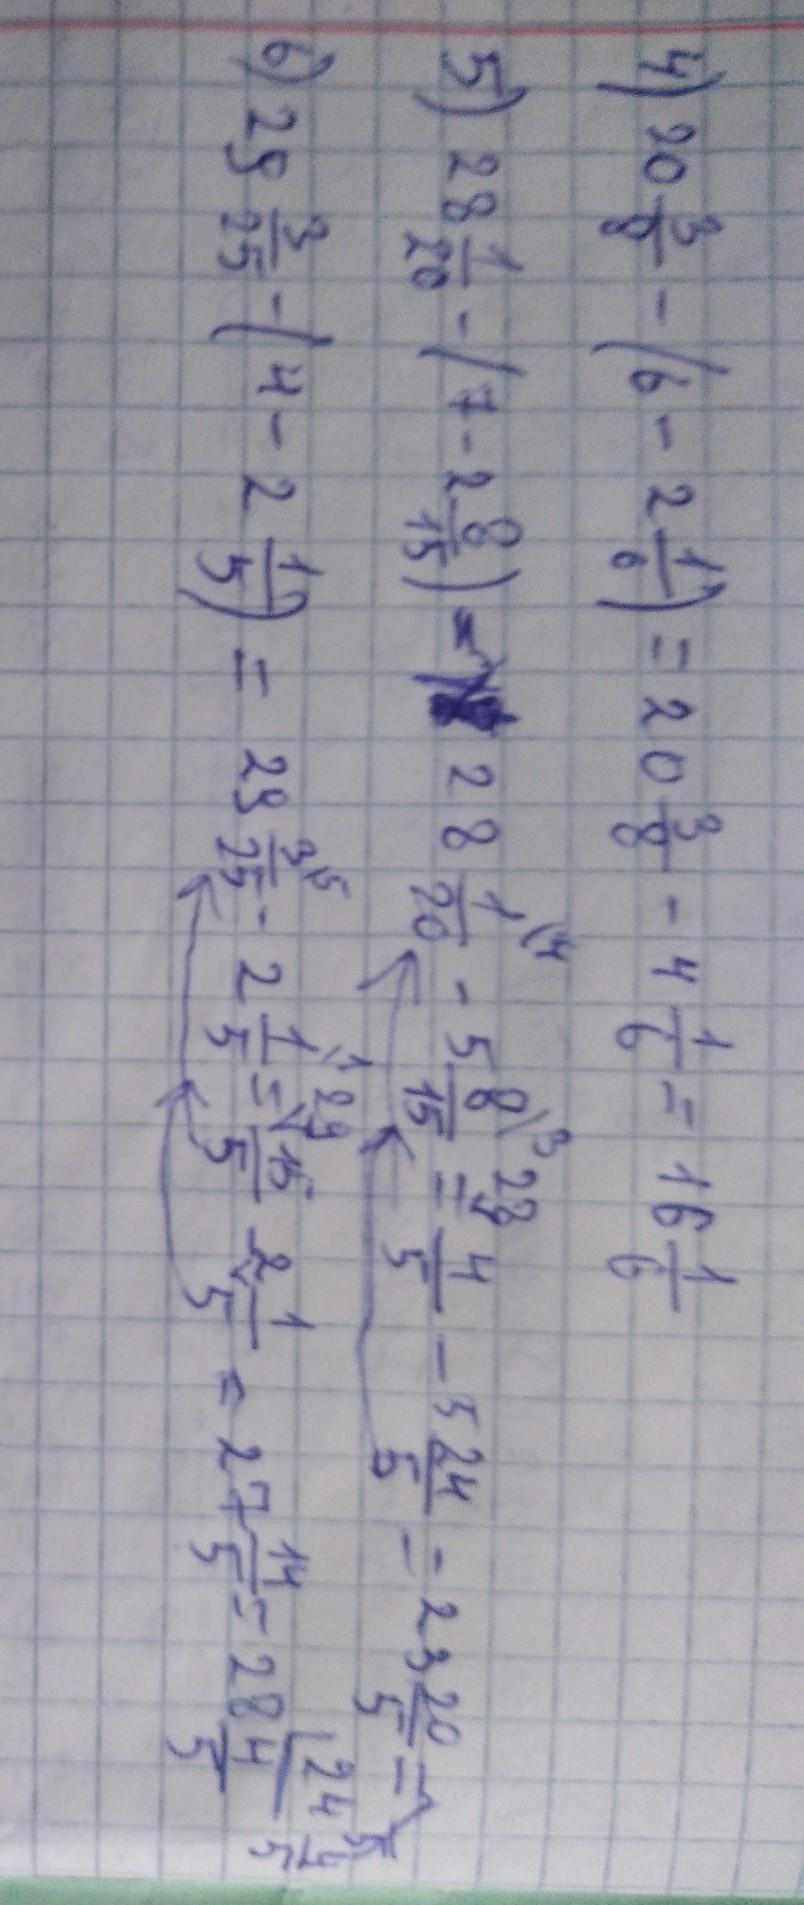 4) 20 3/8 - (6 - 2 1/6) = 20 3/8 - 4 1/6 = 16 1/6
5) 28 1/20 - (7 - 2 8/15) = 28 1/20 \4 - 5 8/15 \3 = 28 4/5 - 5 24/5 = 23 20/5 =
6) 29 3/25 - (4 - 2 1/5) = 29 3/25 \5 - 2 1/5 \1 = 29 15/5 - 2 1/5 = 27 14/5 = 28 4/5 | 24 4/5